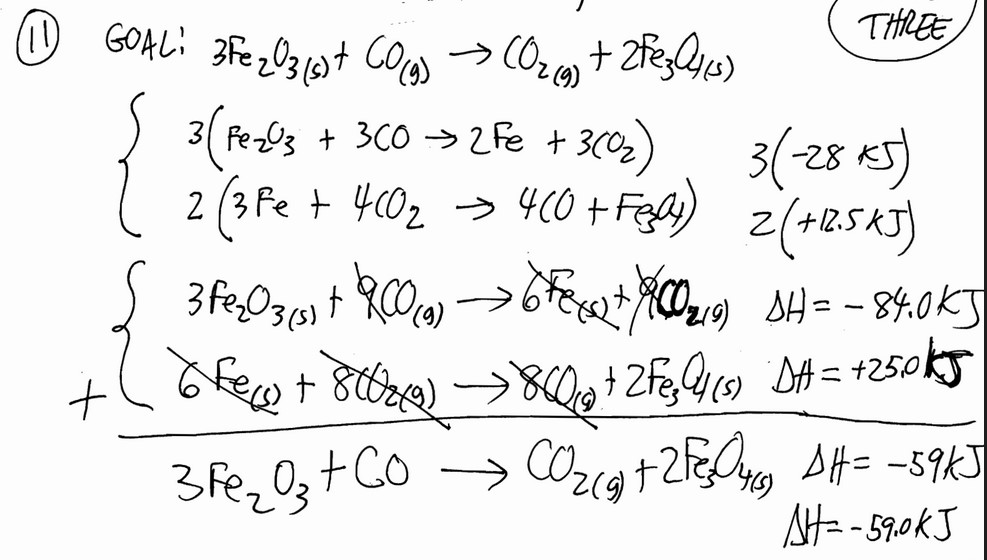 11 GOAL: 3Fe₂O₃(s) + CO(g) → CO₂(g) + 2Fe₃O₄(s)
THREE
3(Fe₂O₃ + 3CO → 2Fe + 3CO₂) 3(-28 KJ)
2(3Fe + 4CO₂ → 4CO + Fe₃O₄) 2(+12.5 KJ)
3Fe₂O₃(s) + 9CO(g) → 6Fe(s) + 9CO₂(g) ΔH = -84.0 KJ
+ 6Fe(s) + 8CO₂(g) → 8CO(g) + 2Fe₃O₄(s) ΔH = +25.0 KJ
3Fe₂O₃ + CO → CO₂(g) + 2Fe₃O₄(s) ΔH = -59 KJ
ΔH = -59.0 KJ